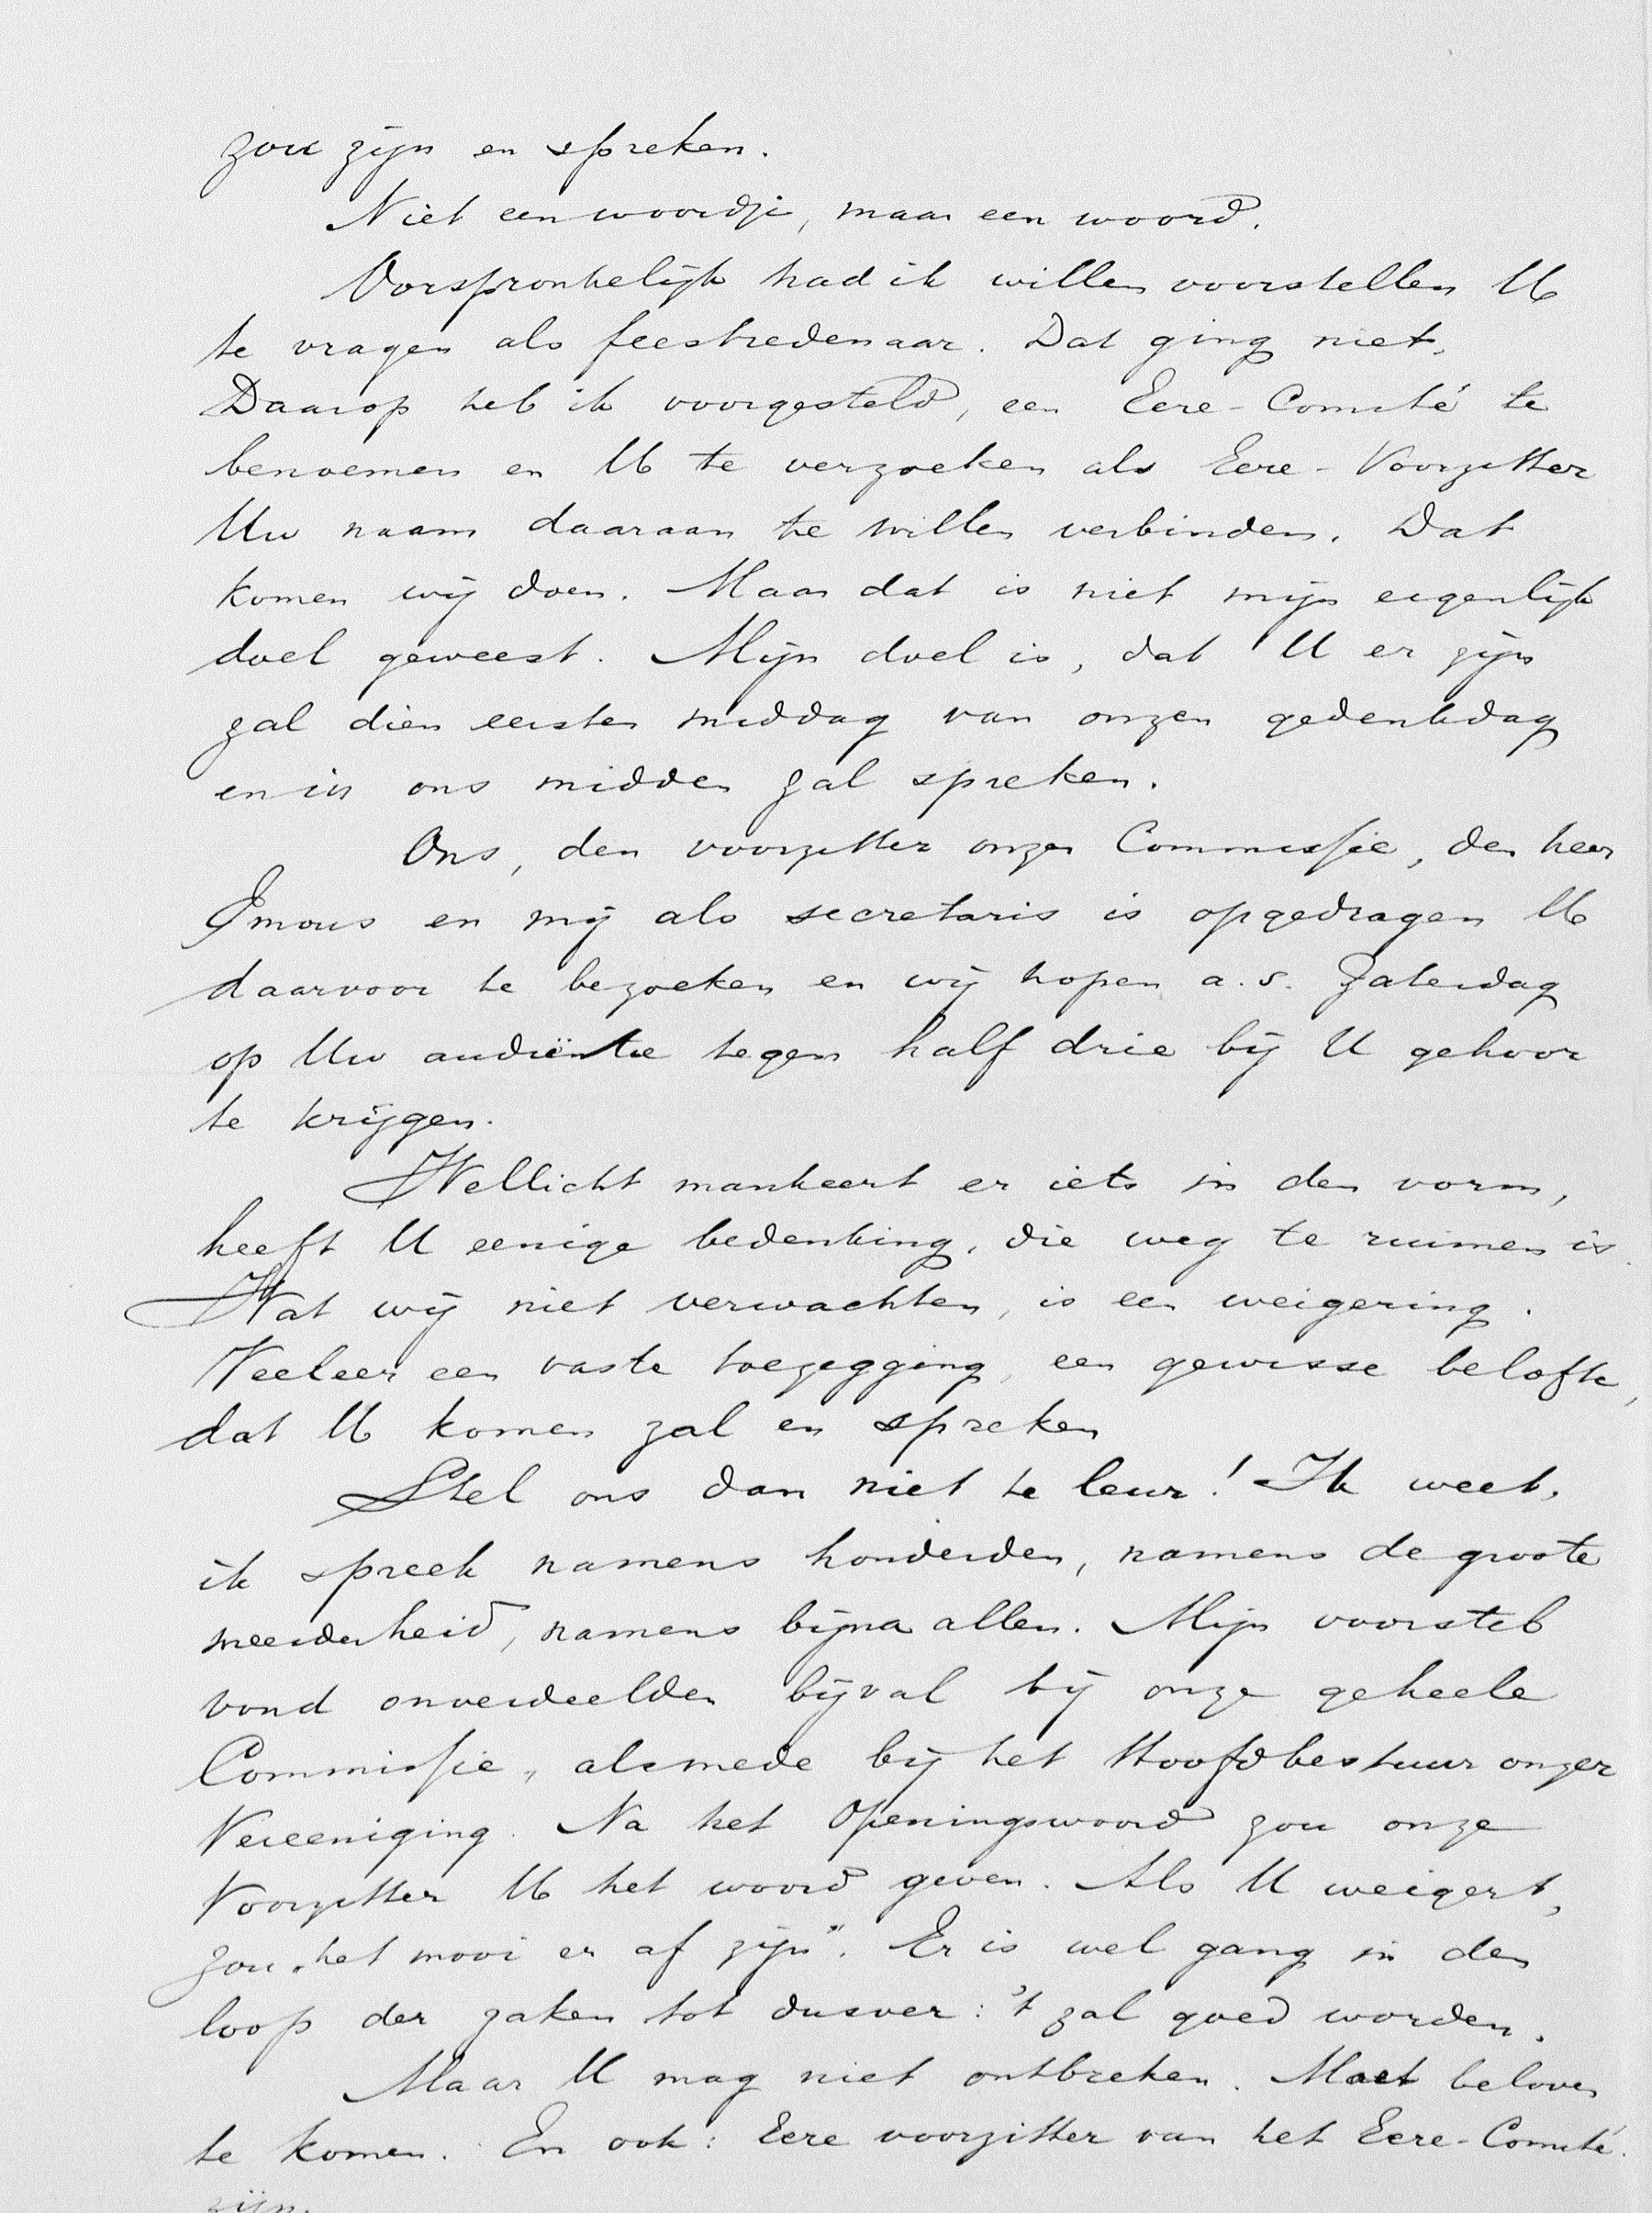 zou zijn en spreken.
Niet een woordje, maar een woord.
Oorspronkelijk had ik willen voorstellen U
te vragen als feestredenaar. Dat ging niet.
Daarop heb ik voorgesteld, een Eere-Comité te
benoemen en U te verzoeken als Eere-Voorzitter
Uw naam daaraan te willen verbinden. Dat
komen wij doen. Maar dat is niet mijn eigenlijk
doel geweest. Mijn doel is, dat U er zijn
zal dien eersten middag van onzen gedenkdag
en in ons midden zal spreken.
Ons, den voorzitter onzer Commissie, den heer
Emous en mij als secretaris is opgedragen U
daarvoor te bezoeken en wij hopen a.s. Zaterdag
op Uw audiëntie tegen half drie bij U gehoor
te krijgen.
Wellicht mankeert er iets in den vorm,
heeft U eenige bedenking, die weg te ruimen is.
Wat wij niet verwachten, is een weigering.
Veeleer een vaste toezegging, een gewisse belofte,
dat U komen zal en spreken
Stel ons dan niet te leur! Ik weet,
ik spreek namens honderden, namens de groote
meerderheid, namens bijna allen. Mijn voorstel
vond onverdeelden bijval bij onze geheele
Commissie, alsmede bij het Hoofdbestuur onzer
Vereeniging. Na het Openingswoord zou onze
Voorzitter U het woord geven. Als U weigert,
zou „het mooi er af zijn". Er is wel gang in den
loop der zaken tot dusver: 't zal goed worden.
Maar U mag niet ontbreken. Moet beloven
te komen. En ook: Eere voorzitter van het Eere-Comité.
zijn.